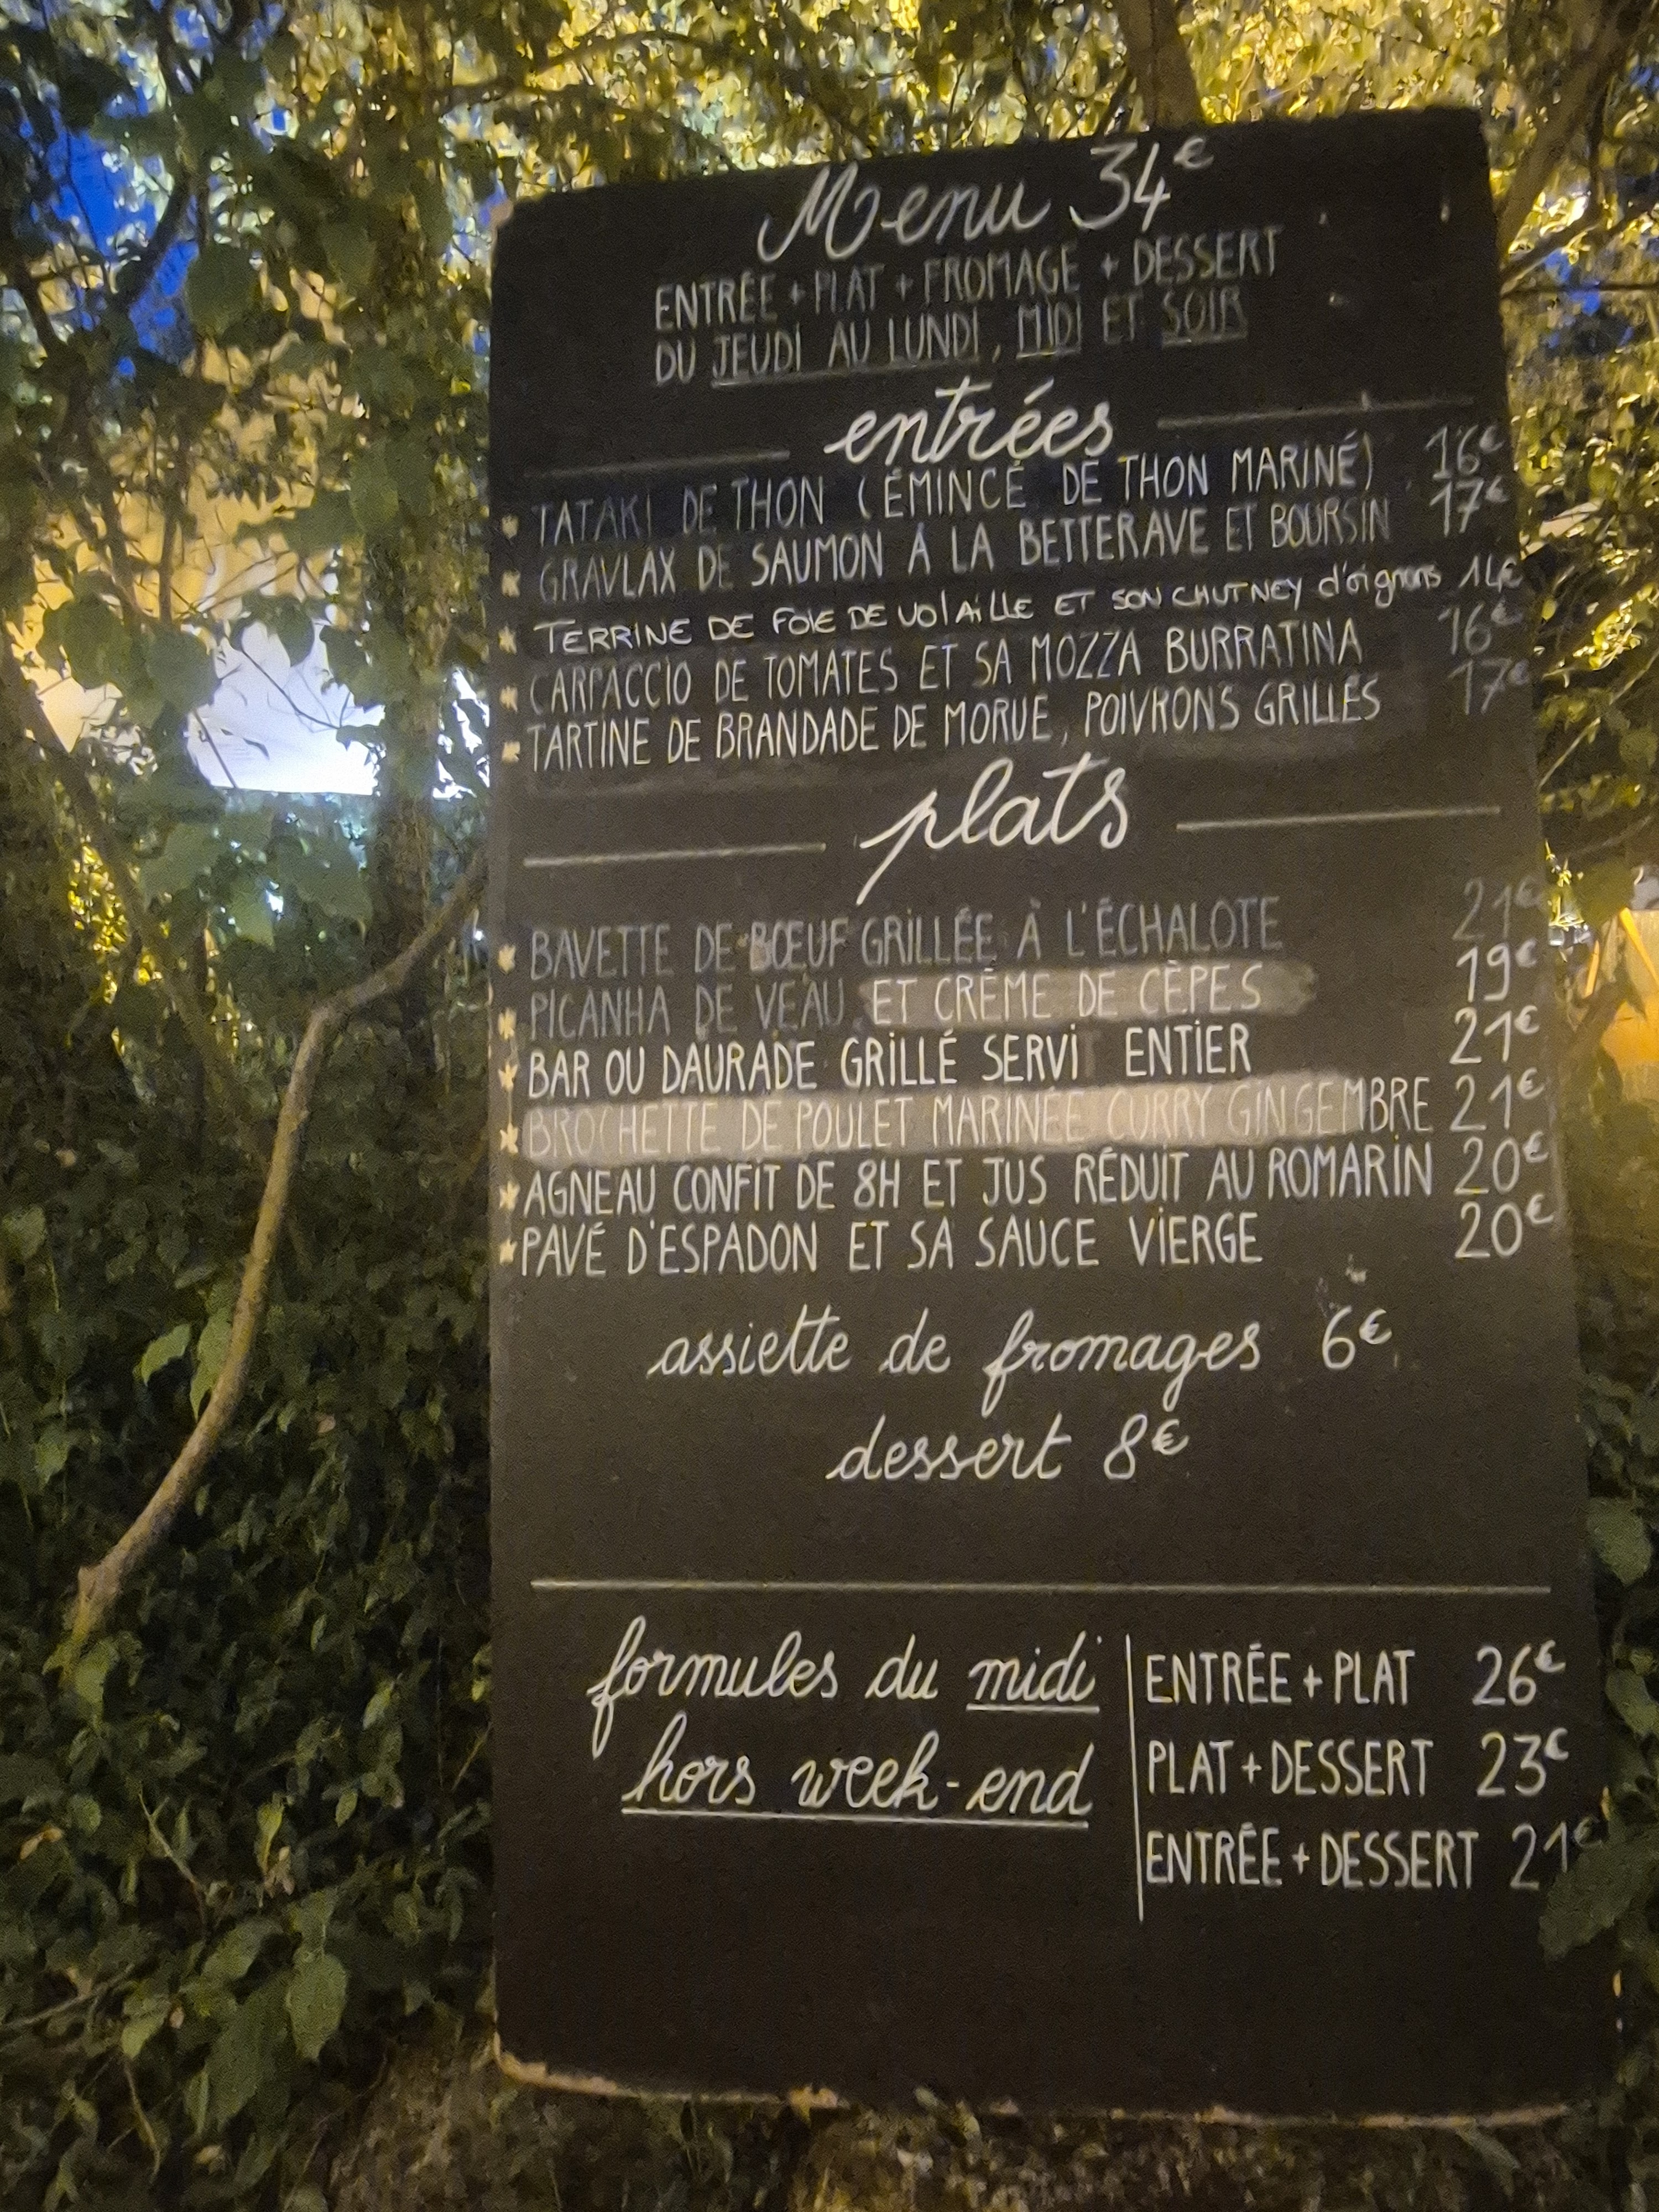 Menu 34€
ENTRÉE + PLAT + FROMAGE + DESSERT
DU JEUDI AU LUNDI, MIDI ET SOIR
entrées
TATAKI DE THON (ÉMINCÉ DE THON MARINÉ) 16€
GRAVLAX DE SAUMON À LA BETTERAVE ET BOURSIN 17€
TERRINE DE FOIE DE VOLAILLE ET SON CHUTNEY d'oignons 14€
CARPACCIO DE TOMATES ET SA MOZZA BURRATINA 16€
TARTINE DE BRANDADE DE MORUE, POIVRONS GRILLÉS 17€
plats
BAVETTE DE BŒUF GRILLÉE À L'ÉCHALOTE 21€
PICANHA DE VEAU ET CRÈME DE CÈPES 19€
BAR OU DAURADE GRILLÉ SERVI ENTIER 21€
BROCHETTE DE POULET MARINÉE CURRY GINGEMBRE 21€
AGNEAU CONFIT DE 8H ET JUS RÉDUIT AU ROMARIN 20€
PAVÉ D'ESPADON ET SA SAUCE VIERGE 20€
assiette de fromages 6€
dessert 8€
formules du midi
hors week-end
ENTRÉE + PLAT 26€
PLAT + DESSERT 23€
ENTRÉE + DESSERT 21€